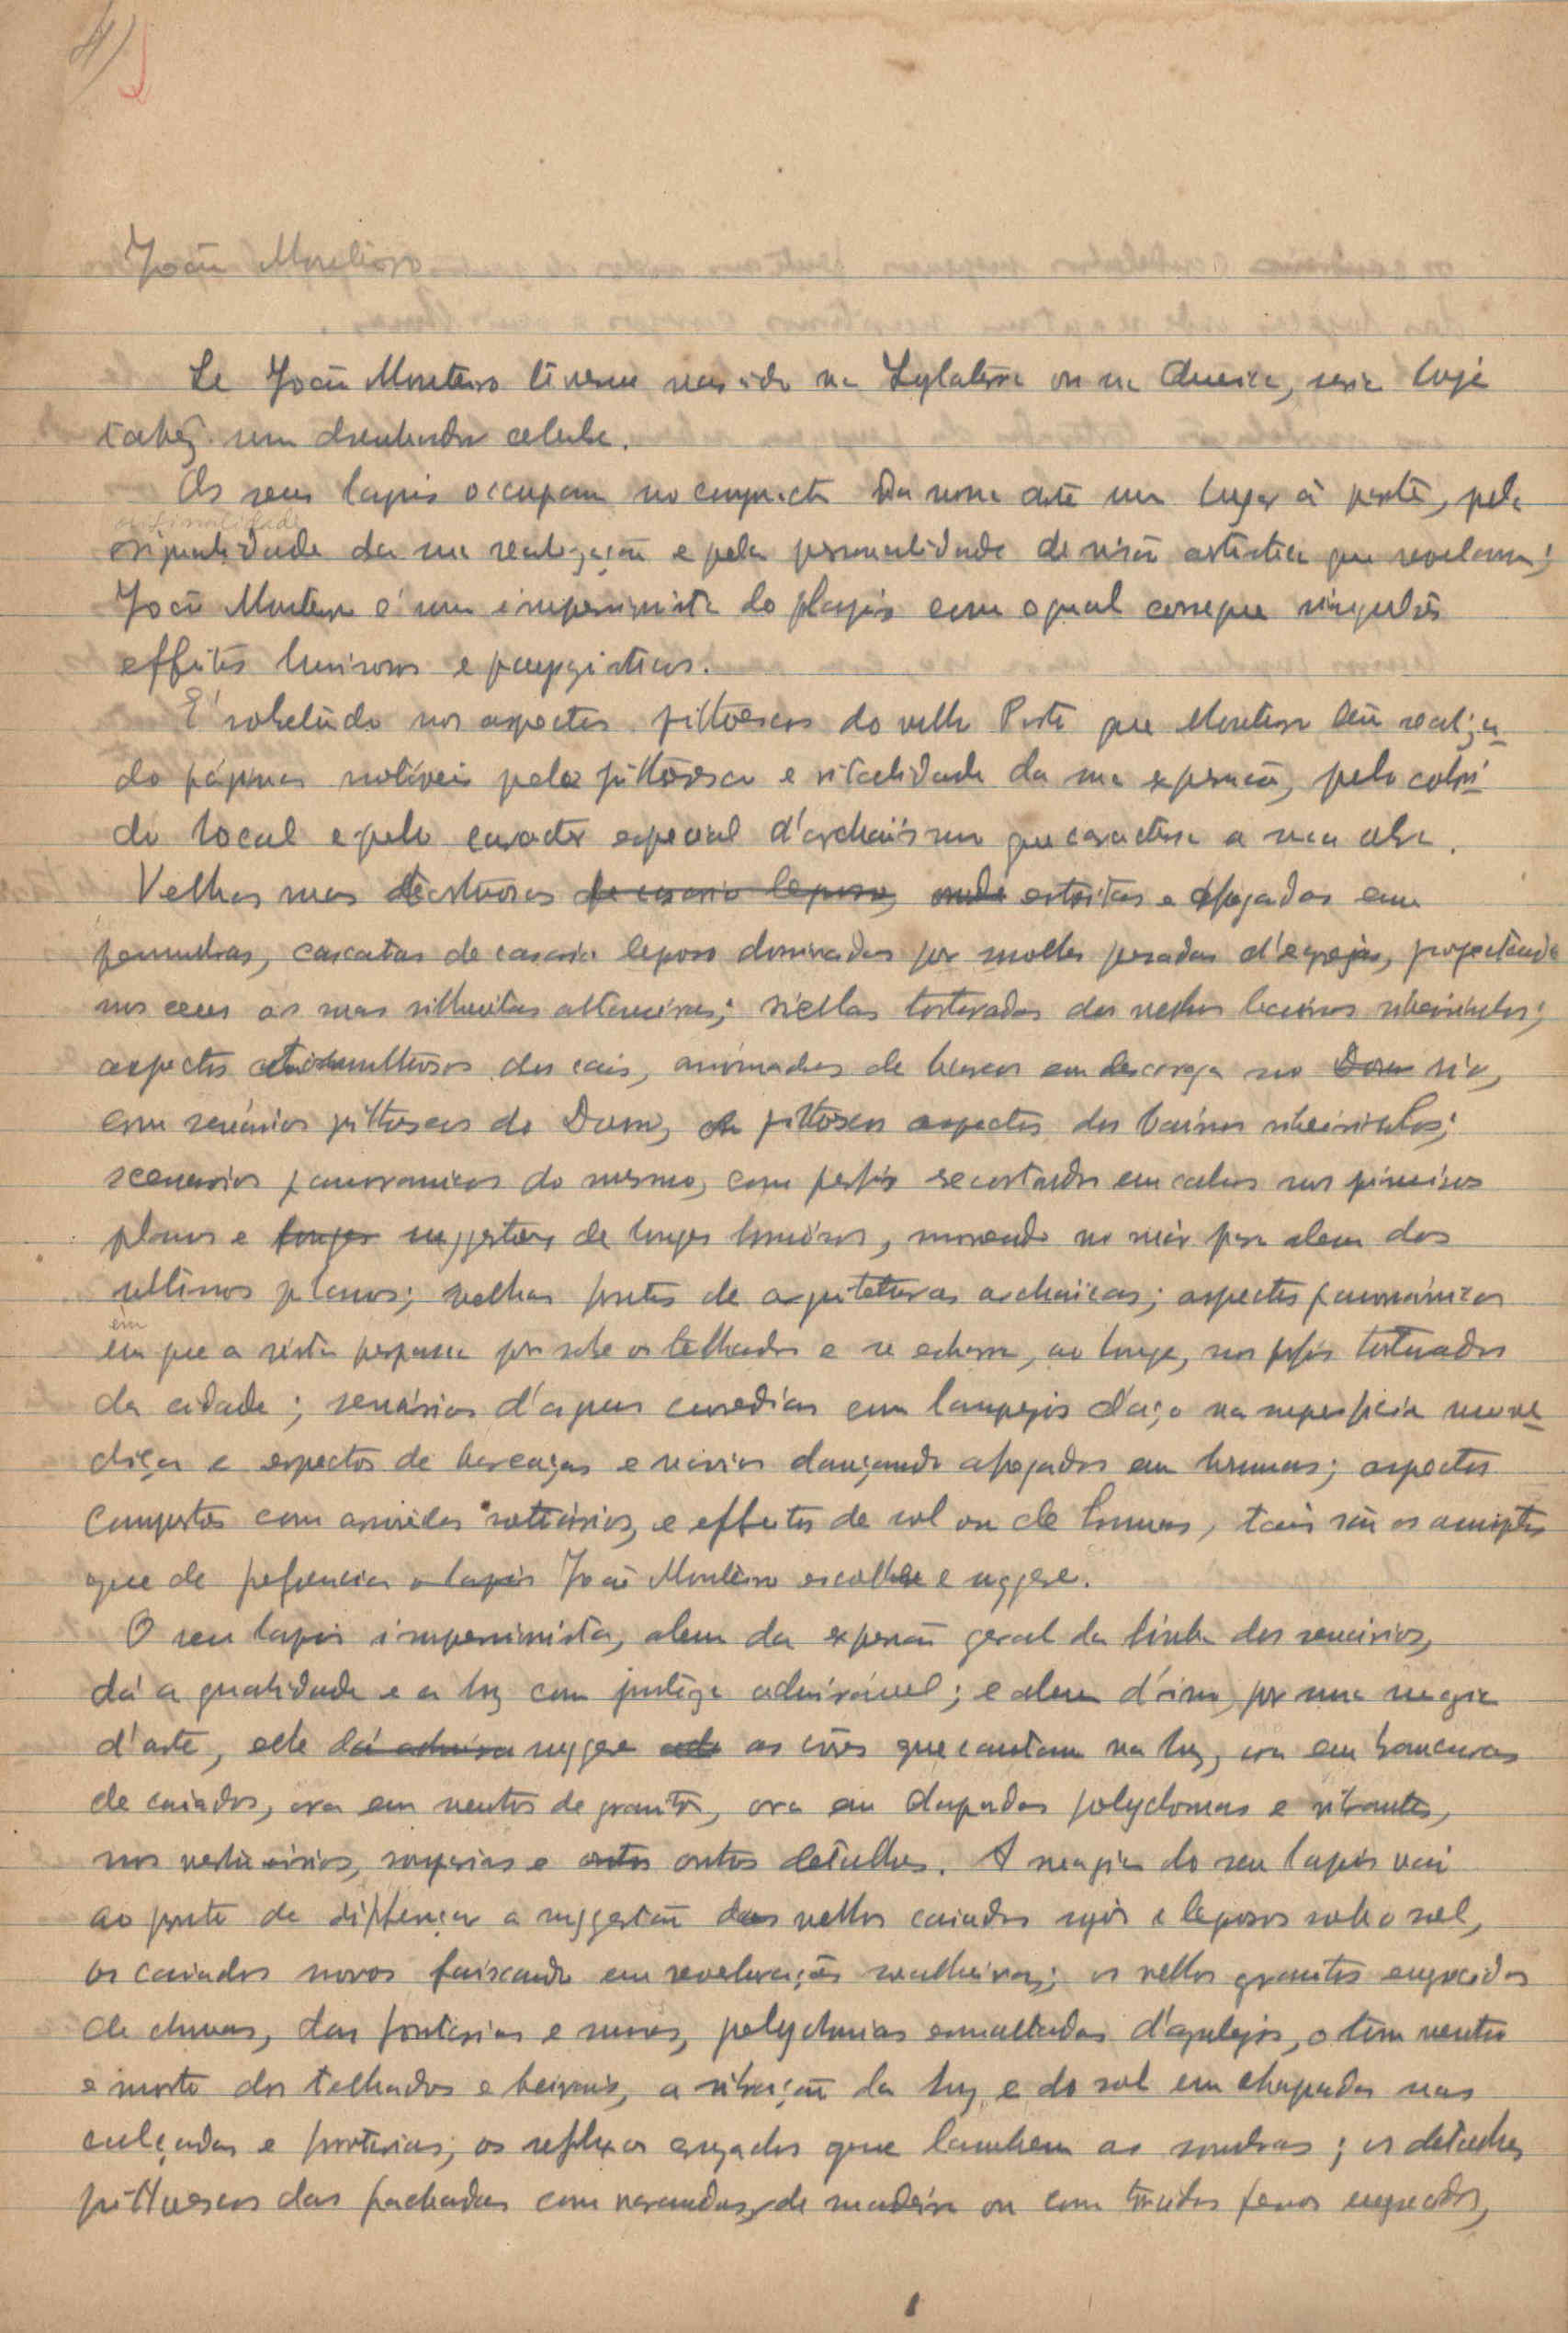 4)
João Monteiro
Se João Monteiro tivesse nascido na Inglaterra ou na America, seria hoje
talvez um desenhador celebre.
Os seus lapis occupam no conjuncto da nossa arte um lugar à parte, pela
originalidade
originalidade da sua realização e pela personalidade de visão artistica que revelam;
João Monteiro é um impressionista do lapis com o qual consegue singulares
effeitos luminosos e paysagisticos.
É sobretudo nos aspectos pittorescos do velho Porto que Monteiro tem realiza-
do páginas notáveis pelo pittoresco e vitalidade da sua expressão, pelo colori-
do local e pelo caracter especial d'archaismo que caracterisa a sua obra.
Velhas ruas tortuosas de casario leproso, onde estreitas e afogadas em
penumbras, cascatas de casario leproso dominadas por molles pesadas d'egrejas, projectando
nos ceus as suas silhuetas altaneiras; viellas torturadas dos velhos bairros ribeirinhos;
aspectos tumultuosos dos cais, animados de barcos em descarga no Douro rio,
com scenários pittorescos do Douro, pittorescos aspectos dos bairros ribeirinhos;
scenarios panoramicos do mesmo, com perfis recortados em cabos nos primeiros
planos e longes suggestões de longes luminosos, morrendo no mar para alem dos
ultimos planos; velhas fontes de arquiteturas archaicas; aspectos panorámicos
em
em que a vista perpassa por sobre os telhados e se esbarra, ao longe, nos perfis torturados
da cidade; scenários d'aguas correдias com lampejos d'aço na superficie move-
diça e aspectos de barcaças e navios dançando afogados em brumas; aspectos
compostos com arvoredos solitários, e effeitos de sol ou de brumas, tais são os assumptos
que de preferencia o lapis João Monteiro escolhe e suggere.
O seu lapis impressionista, alem da expressão geral da linha dos scenários,
dá a qualidade e a luz com justeza admirável; e alem d'isso, por uma magia
d'arte, elle dá admira suggere as côres que cantam na luz, ora em brancuras
de caiados, ora em neutros de granito, ora em chapadas polychromas e vibrantes,
nos vestuários, roupagens e outros outros detalhes. A magia do seu lapis vai
ao ponto de differençar a suggestão dos velhos caiados sujos e leprosos sob o sol,
os caiados novos faiscando em reverberações soalheiras; os velhos granitos ennegrecidos
de chuvas, das frontarias e muros, polychromias esmaltadas d'azulejos, o tom neutro
e morto dos telhados e beirais, a vibração da luz e do sol em chapadas nas
calçadas e frontarias; os reflexos azulados que lambem as sombras; os detalhes
pittorescos das fachadas com varandas de madeira ou com torcidos ferros ennegrecidos,
1